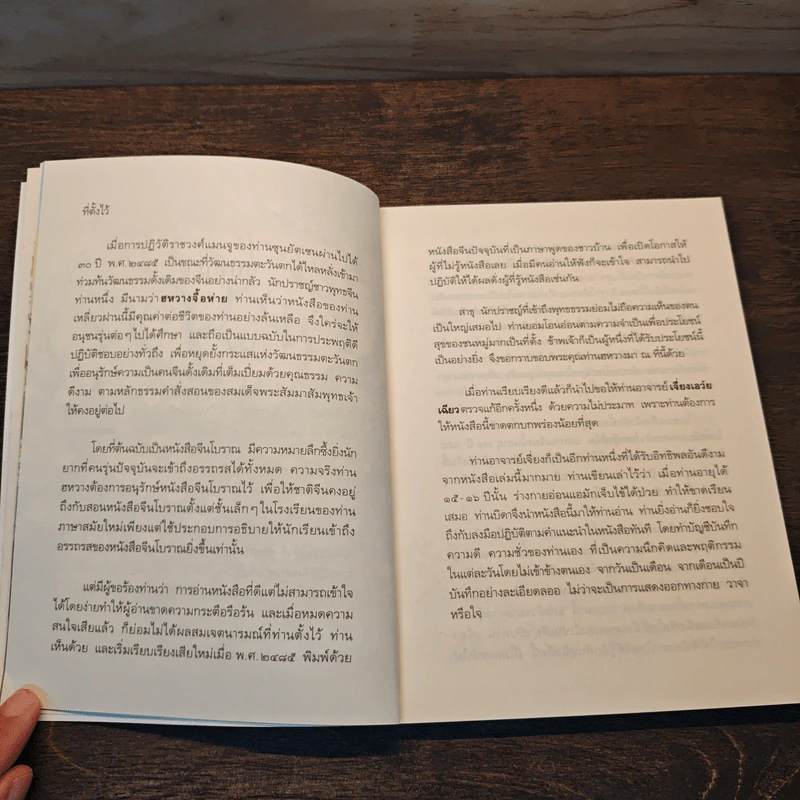 ที่ตั้งไว้
เมื่อการปฏิวัติราชวงศ์แมนจูของท่านซุนยัตเซนผ่านไปได้
๓๐ ปี พ.ศ. ๒๔๘๕ เป็นขณะที่วัฒนธรรมตะวันตกได้ไหลหลั่งเข้ามา
ท่วมทับวัฒนธรรมดั้งเดิมของจีนอย่างน่ากลัว นักปราชญ์ชาวพุทธจีน
ท่านหนึ่ง มีนามว่า ฮหวางจื้อห่าย ท่านเห็นว่าหนังสือของท่าน
เหลียวฝานนี้มีคุณค่าต่อชีวิตของท่านอย่างล้นเหลือ จึงใคร่จะให้
อนุชนรุ่นต่อๆ ไปได้ศึกษา และถือเป็นแบบฉบับในการประพฤติดี
ปฏิบัติชอบอย่างทั่วถึง เพื่อหยุดยั้งกระแสแห่งวัฒนธรรมตะวันตก
เพื่ออนุรักษ์ความเป็นคนจีนดั้งเดิมที่เต็มเปี่ยมด้วยคุณธรรม ความ
ดีงาม ตามหลักธรรมคำสั่งสอนของสมเด็จพระสัมมาสัมพุทธเจ้า
ให้คงอยู่ต่อไป
โดยที่ต้นฉบับเป็นหนังสือจีนโบราณ มีความหมายลึกซึ้งยิ่งนัก
ยากที่คนรุ่นปัจจุบันจะเข้าถึงอรรถรสได้ทั้งหมด ความจริงท่าน
ฮหวางต้องการอนุรักษ์หนังสือจีนโบราณไว้ เพื่อให้ชาติจีนคงอยู่
ถึงกับสอนหนังสือจีนโบราณตั้งแต่ชั้นเล็กๆ ในโรงเรียนของท่าน
ภาษาสมัยใหม่เพียงแต่ใช้ประกอบการอธิบายให้นักเรียนเข้าถึง
อรรถรสของหนังสือจีนโบราณยิ่งขึ้นเท่านั้น
แต่มีผู้ขอร้องท่านว่า การอ่านหนังสือที่ดีแต่ไม่สามารถเข้าใจ
ได้โดยง่ายทำให้ผู้อ่านขาดความกระตือรือร้น และเมื่อหมดความ
สนใจเสียแล้ว ก็ย่อมไม่ได้ผลสมเจตนารมณ์ที่ท่านตั้งไว้ ท่าน
เห็นด้วย และเริ่มเรียบเรียงเสียใหม่เมื่อ พ.ศ. ๒๔๘๕ พิมพ์ด้วย
หนังสือจีนปัจจุบันที่เป็นภาษาพูดของชาวบ้าน เพื่อเปิดโอกาสให้
ผู้ที่ไม่รู้หนังสือเลย เมื่อมีคนอ่านให้ฟังก็จะเข้าใจ สามารถนำไป
ปฏิบัติให้ได้ผลดั่งผู้ที่รู้หนังสือเช่นกัน
สาธุ นักปราชญ์ที่เข้าถึงพุทธธรรมย่อมไม่ถือความเห็นของตน
เป็นใหญ่เสมอไป ท่านยอมโอนอ่อนตามความจำเป็นเพื่อประโยชน์
สุขของชนหมู่มากเป็นที่ตั้ง ข้าพเจ้าก็เป็นผู้หนึ่งที่ได้รับประโยชน์นี้
เป็นอย่างยิ่ง จึงขอกราบขอบพระคุณท่านฮหวางมา ณ ที่นี้ด้วย
เมื่อท่านเรียบเรียงดีแล้วก็นำไปขอให้ท่านอาจารย์ เจี่ยงเอว๋ย
เฉียว ตรวจแก้อีกครั้งหนึ่ง ด้วยความไม่ประมาท เพราะท่านต้องการ
ให้หนังสือนี้ขาดตกบกพร่องน้อยที่สุด
ท่านอาจารย์เจี่ยงก็เป็นอีกท่านหนึ่งที่ได้รับอิทธิพลอันดีงาม
จากหนังสือเล่มนี้มากมาย ท่านเขียนเล่าไว้ว่า เมื่อท่านอายุได้
๑๕-๑๖ ปีนั้น ร่างกายอ่อนแอมักเจ็บไข้ได้ป่วย ทำให้ขาดเรียน
เสมอ ท่านบิดาจึงนำหนังสือนี้มาให้ท่านอ่าน ท่านยิ่งอ่านก็ยิ่งชอบใจ
ถึงกับลงมือปฏิบัติตามคำแนะนำในหนังสือทันที โดยทำบัญชีบันทึก
ความดี ความชั่วของท่านเอง ที่เป็นความนึกคิดและพฤติกรรม
ในแต่ละวันโดยไม่เข้าข้างตนเอง จากวันเป็นเดือน จากเดือนเป็นปี
บันทึกอย่างละเอียดลออ ไม่ว่าจะเป็นการแสดงออกทางกาย วาจา
หรือใจ